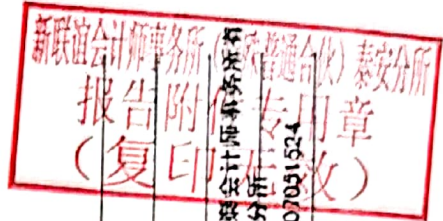 新联谊会计师事务所（特殊普通合伙）泰安分所
报告附件专用章
（复印无效）
会计师事务所有
分所
07051524